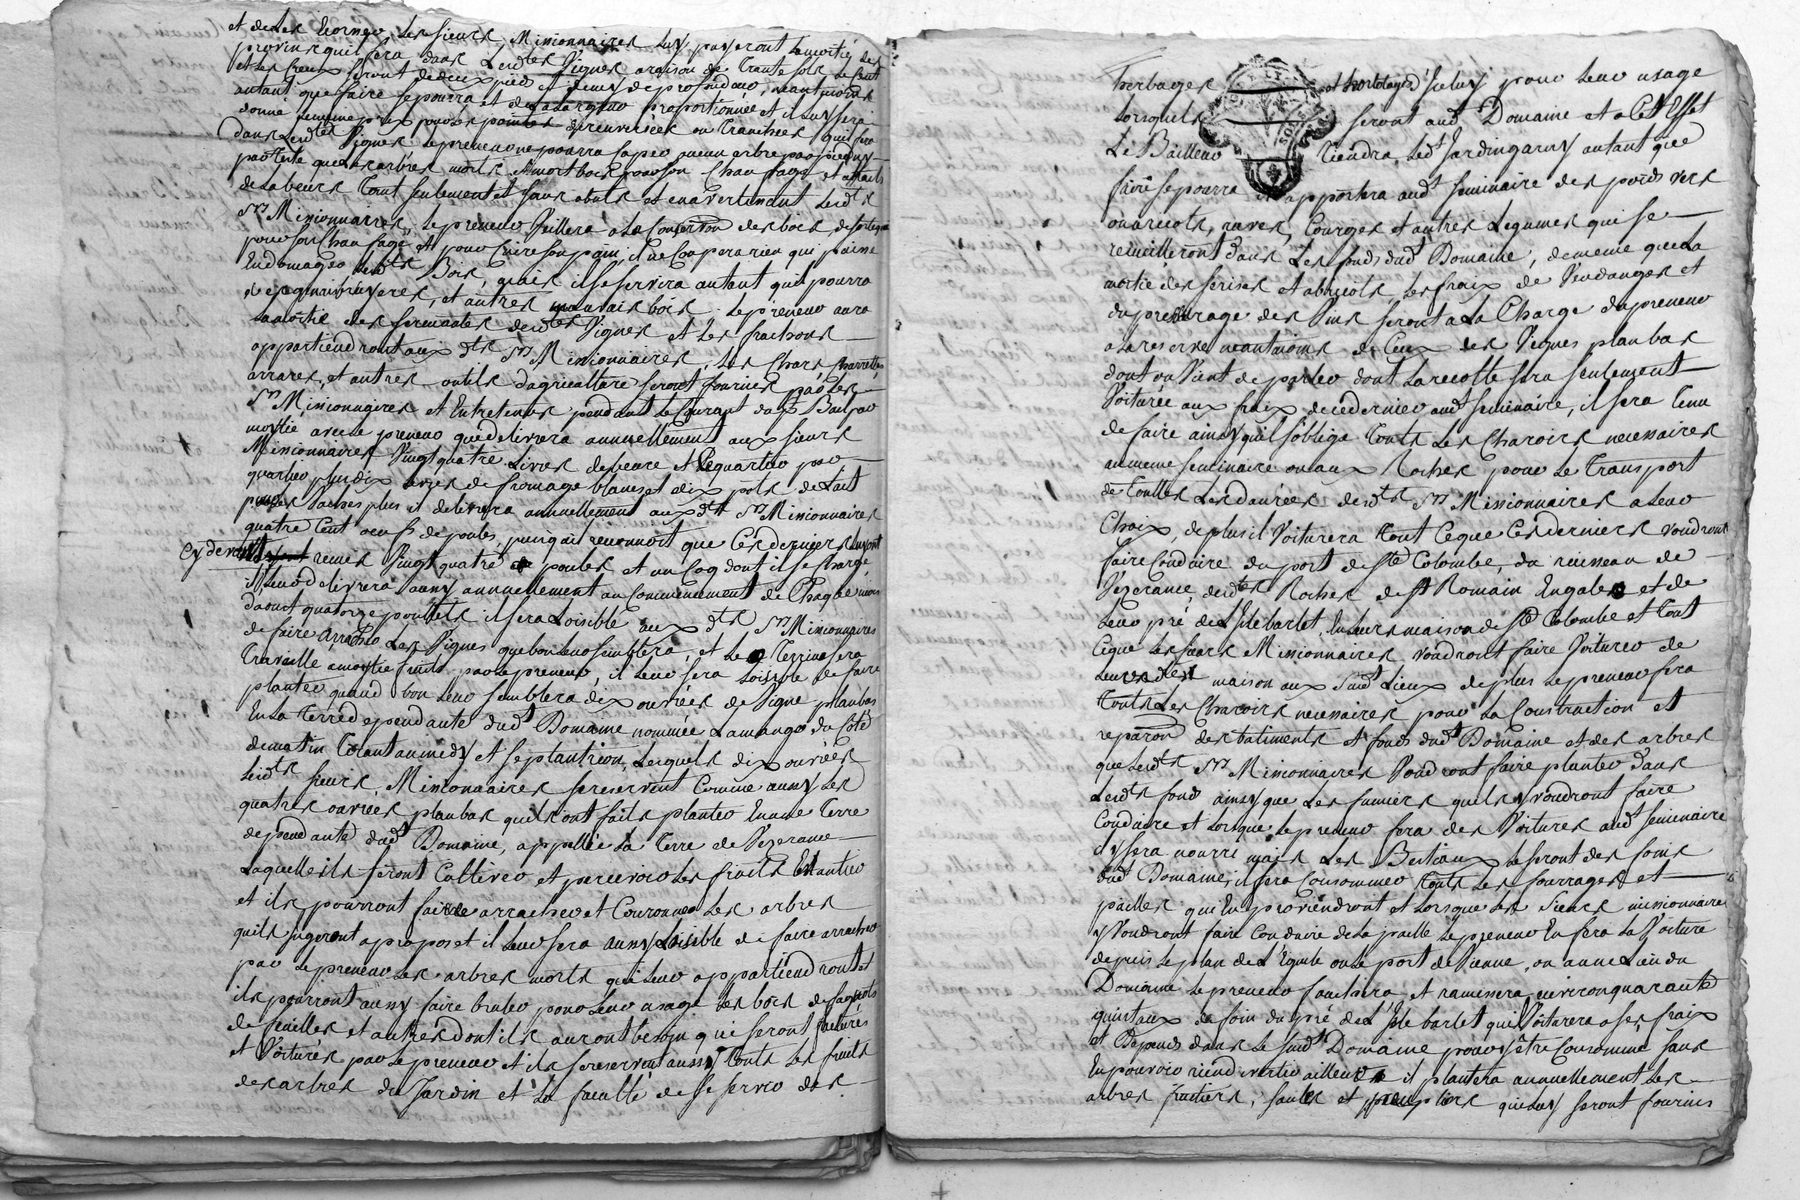 et de les borner, les sieurs Missionnaires luy payeront la moitié des
provins quil fera dans lesd.tes Vignes araison de trante sols le cent
et les creux seront de deux pieds et demy de profondeur, neantmoins
autant que faire se pourra et de la largeur proportionnée et il luy sera
donné meme prix pour les pointes
dans lesd.tes Vignes le preneur ne pourra saper aucun arbre par pied ny
par tete que les arbres morts & mort bois pour son chaufage et
de labeurs tout seulement et sans abus et en avertissant lesd.ts
S.rs Missionnaires, le preneur veillera a la conser.on des bois
pour son chaufage et pour cuire son pain, il ne coupera rien qui puisse
Endomager lesd.ts Bois, mais il se servira autant quil pourra
et autres mauvais bois. le preneur aura
la moitié des sarments desd.tes Vignes et les
appartiendront aux d.ts S.rs Missionnaires, les Chars, charrettes,
arrares, et autres outils dagriculture seront fournis par les
S.rs Missionnaires et Entretenus pendant le Courant du p.t Bail par
moytié avec le preneur que delivrera annuellement aux sieurs
Missionnaires Vingt quatre Livres de beure et Le quartier par
quartier plus dix livres de fromage blancs et dix pots de Lait
plus il delivrera annuellement aux d.ts S.rs Missionnaires
quatre Cent oeufs de poules, puis quil reconnoit que Ces derniers luy ont
cy devant remis Vingt quatre poules et un Coq dont il se Charge
il leur delivrera aussy annuellement au Commencement de Chaque mois
daoust quatorze poulets il sera Loisible aux d.ts S.rs Missionnaires
de faire arracher Les Vignes que bon leur semblera, et le Terrin sera
Travaillé a moytié fruits par le preneur, il leur sera Loisible de faire
planter quand bon leur semblera dix ouvrées de Vigne planbas
En la Terre dependante dud.t Domaine nommée Lamange du Coté
de matin Tirant au midy et Septantrion, Lesquels dix ouvrées
Lesd.ts sieurs Missionnaires se reservent Comme aussy Les
quatres ouvrées planbas quils ont faits planter En une Terre
dependante dud.t Domaine, appellée La Terre de Vezerance
Laquelle ils feront Cultiver et percevoir les fruits En antier
et ils pourront faire arracher et Couronner Les arbres
quils jugeront apropos et il leur sera aussy Loisible de faire arracher
par le preneur Les arbres morts qui leur appartiendront et
ils pourront aussy faire bruler pour leur usage les bois de fagots
de feuilles et autres dont ils auront besoin qui seront
et Voiturés par le preneur et ils se reservent aussy touts les fruits
des arbres du Jardin et la faculté de se servir des
herbages et hortolages d'Iceluy pour leur usage
Lorsquils seront aud.t Domaine et a Cet Effet
Le Bailleur Tiendra Led.t Jardin garny autant que
faire se pourra apportera aud.t seminaire des pois vers
ouaricots, raves, Courges et autres Legumes qui se
reuilleront dans Les fonds dud.t Domaine, de meme que la
moitié des serises et abricots Les fraix de Vendanges et
du presurage des Vins seront a La Charge du preneur
a la reserve neantmoins de Ceux des Vignes planbas
dont on Vient de parler dont la recolte sera seulement
Voiturée aux fraix de ce dernier aud.t Seminaire, il sera tenu
de faire ainsy quil soblige touts Les Charois necessaires
au meme seminaire ou aux Roches pour Le Transport
de Toutes Les danrées desd.ts S.rs Missionnaires a leur
Choix, de plus il Voiturera tout Ceque Ces derniers voudront
faire Conduire du port de S.te Colombe, du ruisseau de
Vezerance, desd.tes Roches de S.t Romain Engales et de
Leur pré de L'Isle barlet, En leurs maison de S.te Colombe et tout
Ceque Les sieurs Missionnaires voudront faire Voiturer de
leurs d.es maison aux susd.ts Lieux de plus Le preneur fera
Touts Les Charois necessaires pour La Construction et
reparaõn des batiments et fonds dud.t Domaine et des arbres
que Lesd.ts S.rs Missionnaires Voudront faire planter dans
Lesd.ts fonds ainsy que Les fumiers quils y voudront faire
Conduire et Lorsque Le preneur fera des Voitures aud.t seminaire
il y sera nourri mais Les Bestiaux Le seront des foins
dud.t Domaine, il fera Consommer touts Les fourrages et
pailles qui En proviendront et Lorsque Les Sieurs missionnaires
y Voudront faire Conduire de la paille Le preneur En fera La Voiture
depuis le plan de L'Eguile ou le port de Vienne, ou autre Lieu du
Domaine le preneur fauchera et ramassera environ quarante
quintaux de foin du pré de L'Isle barlet quil Voiturera a ses fraix
et Depends dans Le susd.t Domaine pour y être Consommé sans
En pouvoir rien divertir ailleurs il plantera annuellement Les
arbres fruitiers, saules et peupliers qui luy seront fournis